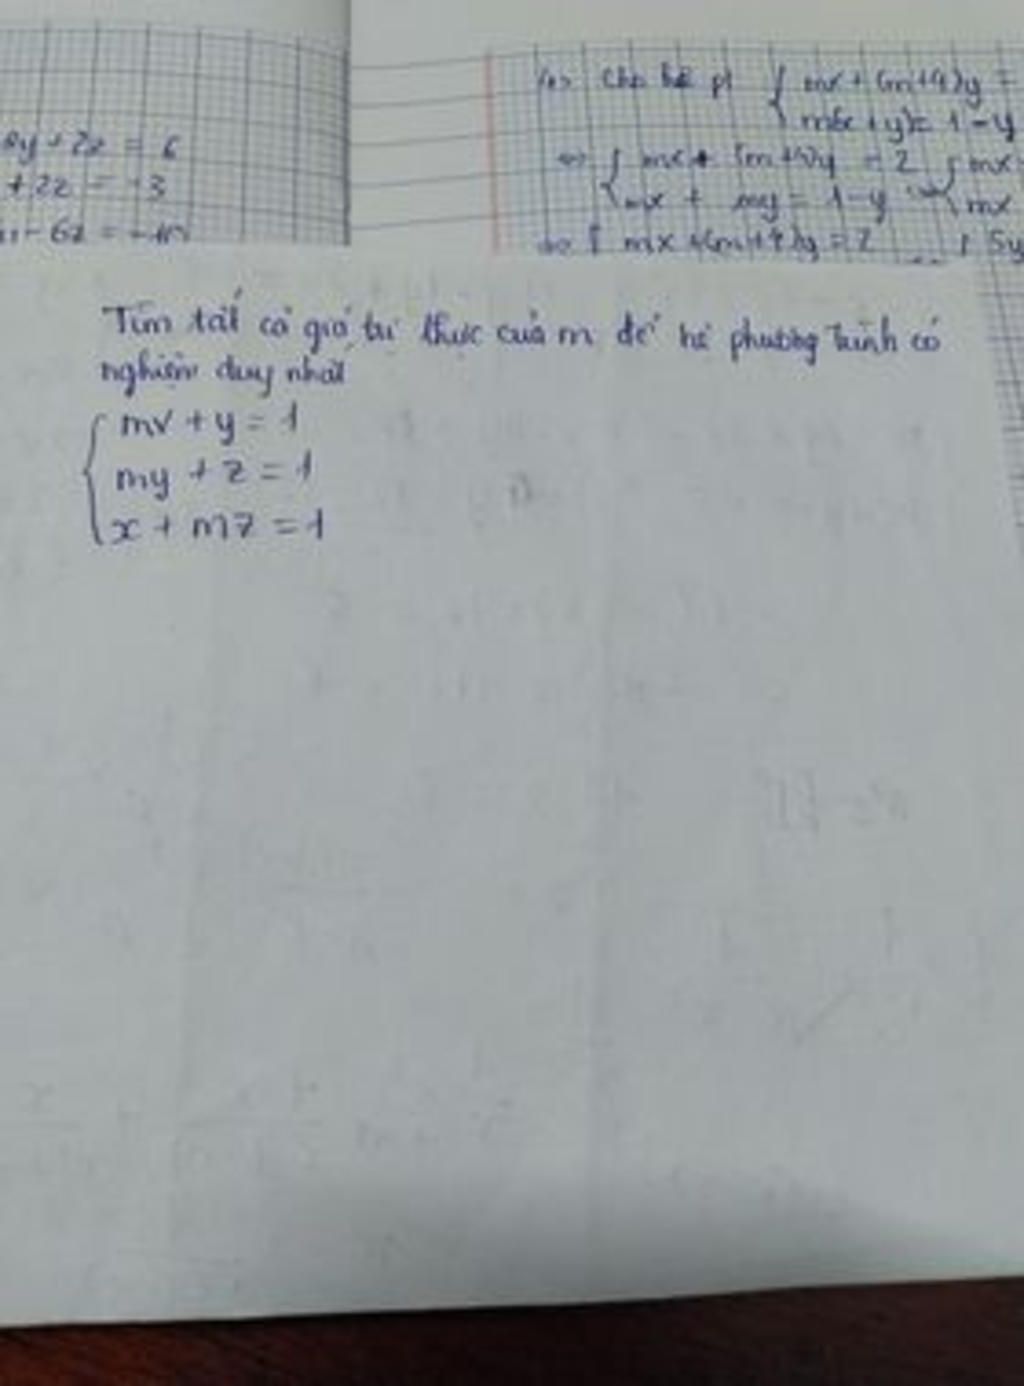 y + 2z = 6
+ 2z = -3
- 6z = -10
Cho hệ pt { mx + (m+4)y =
m(x + y) = 1 - y
<=> { mx + (m+4)y = 2 { mx
mx + my = 1 - y { mx
{ mx + (m+4)y = 2 { 5y
Tìm tất cả giá trị thực của m để hệ phương trình có
nghiệm duy nhất
{ mx + y = 1
my + z = 1
x + mz = 1